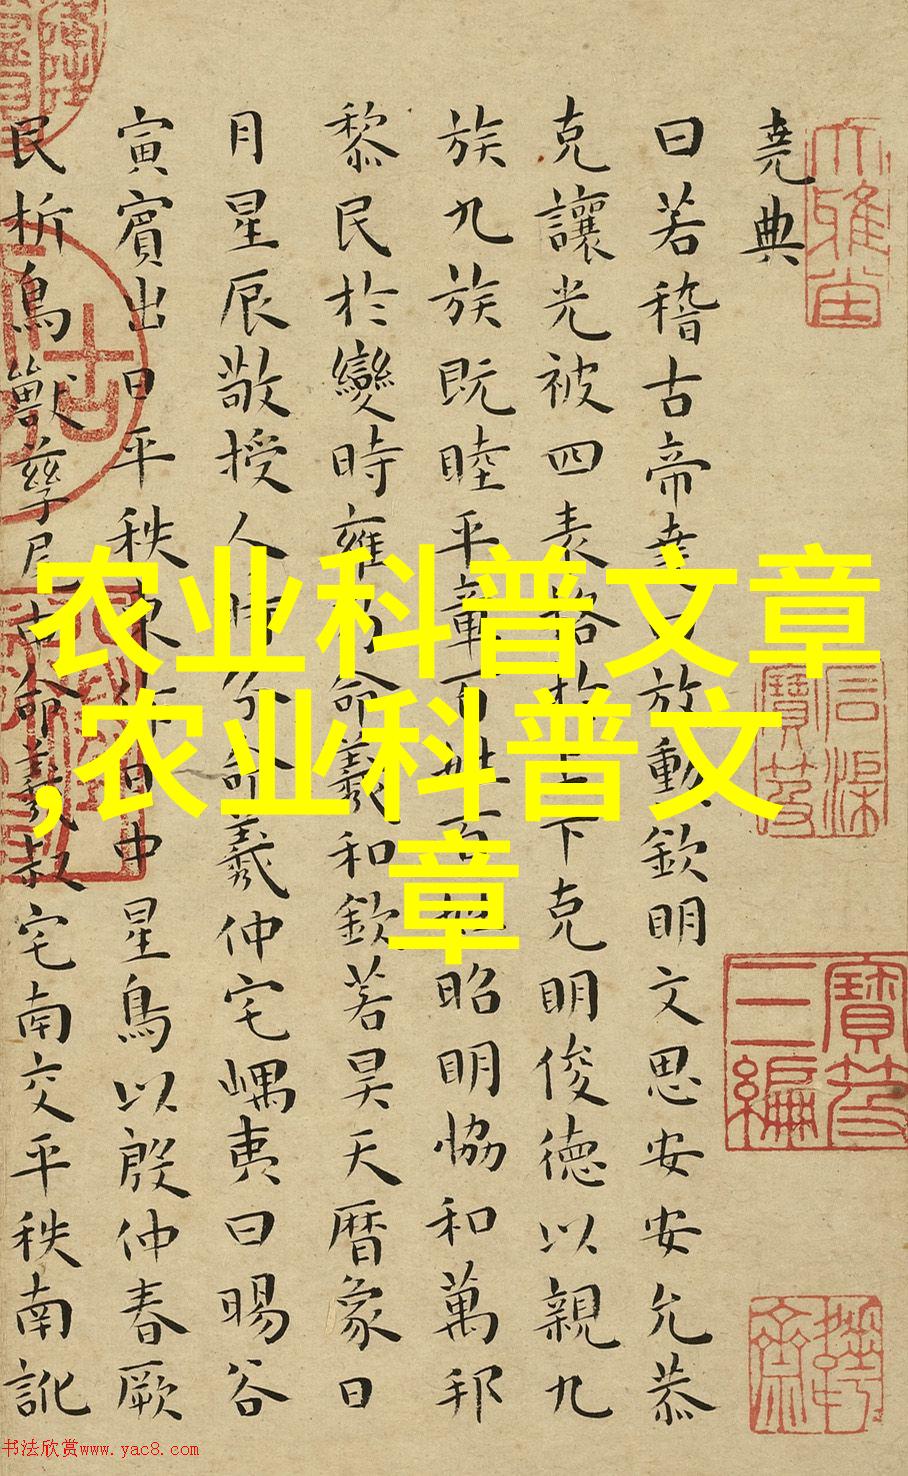 堯典
曰若稽古帝堯曰放勳欽明文思安安允恭
克讓光被四表格于上下克明俊德以親九
族九族既睦平章百姓百姓昭明協和萬邦
黎民於變時雍乃命羲和欽若昊天曆象日
月星辰敬授人時分命羲仲宅嵎夷曰暘谷
寅賓出日平秩東作日中星鳥以殷仲春厥
民析鳥獸孳尾申命羲叔宅南交平秩南訛
农业科普文章
,农业科普文
章
石渠
寶笈
寶笈
三編
书法欣赏www.yac8.com